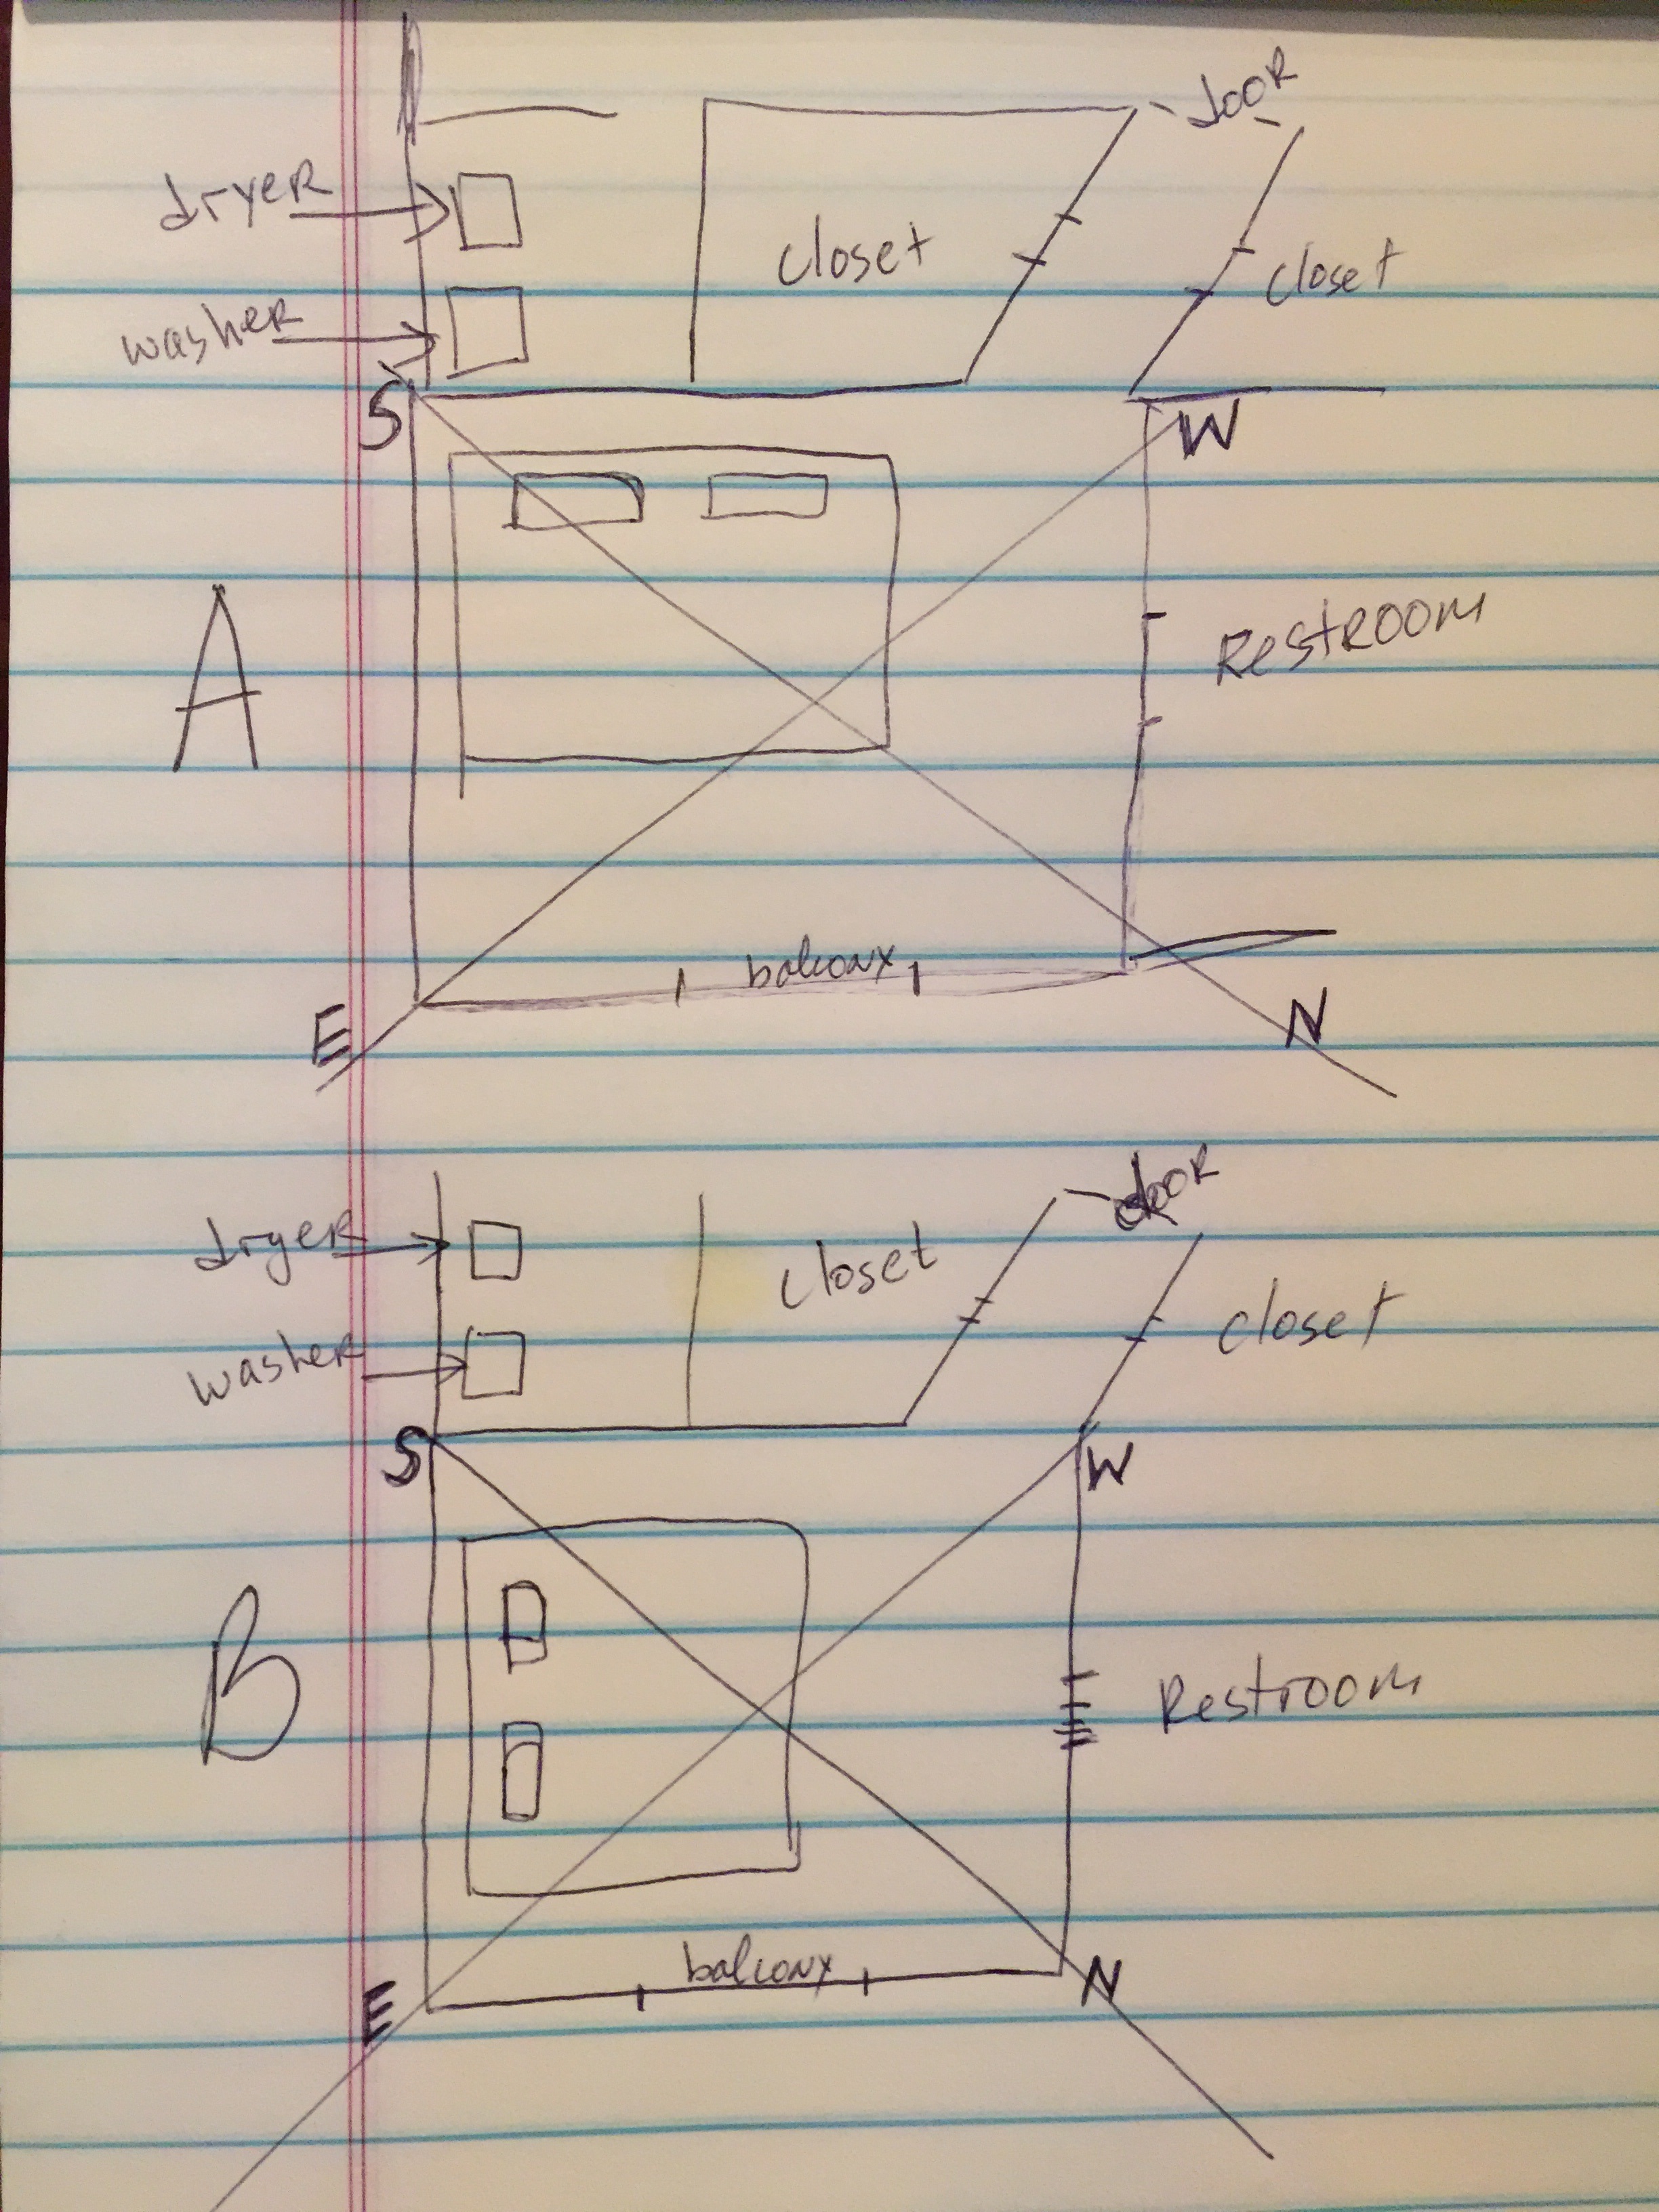 dooR
dryeR
closet
closet
washeR
S
W
RestROOM
A
balcony
E
N
dooR
dryeR
closet
closet
washeR
S
W
B
Restroom
balcony
E
N